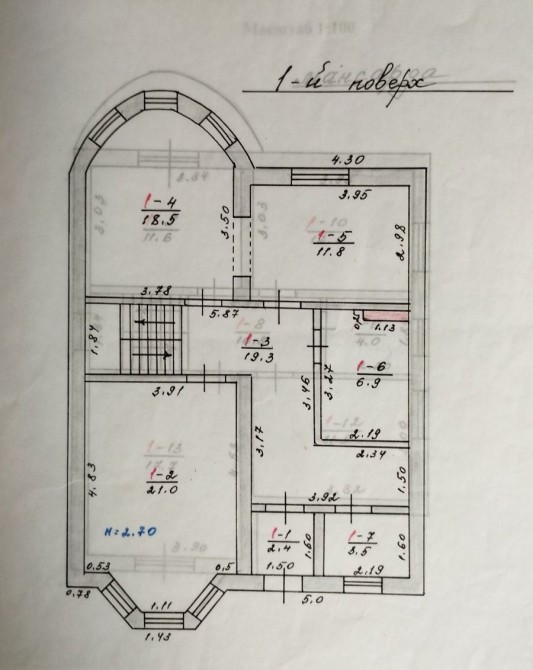 Масштаб 1:100
1-й поверх
4.30
3.95
1-4
18.5
11.6
3.03
3.50
3.03
1-10
1-5
11.8
2.98
3.78
5.87
1.84
1-8
1-3
19.3
0.25
1.13
4.0
1-6
6.9
3.91
3.46
3.27
1-12
2.19
2.34
3.17
4.83
1-13
1-2
21.0
3.92
1.50
н=2.70
1-1
2.4
1.60
1-7
3.5
1.60
3.90
0.53
0,5
1.50
2.19
0.78
1.11
5.0
1.43